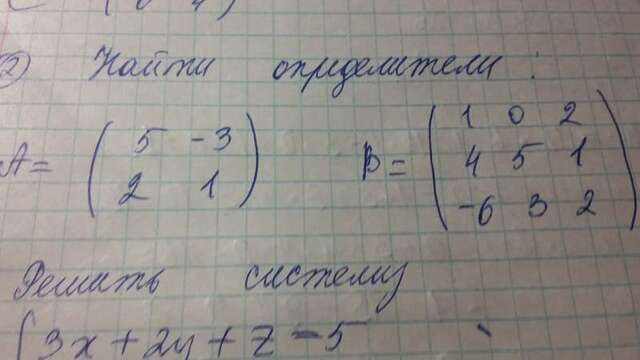 2) Найти определители:
A = ( 5 -3 B = ( 1 0 2
2 1 ) 4 5 1
-6 3 2 )
Решать систему
{ 3x + 2y + z = 5